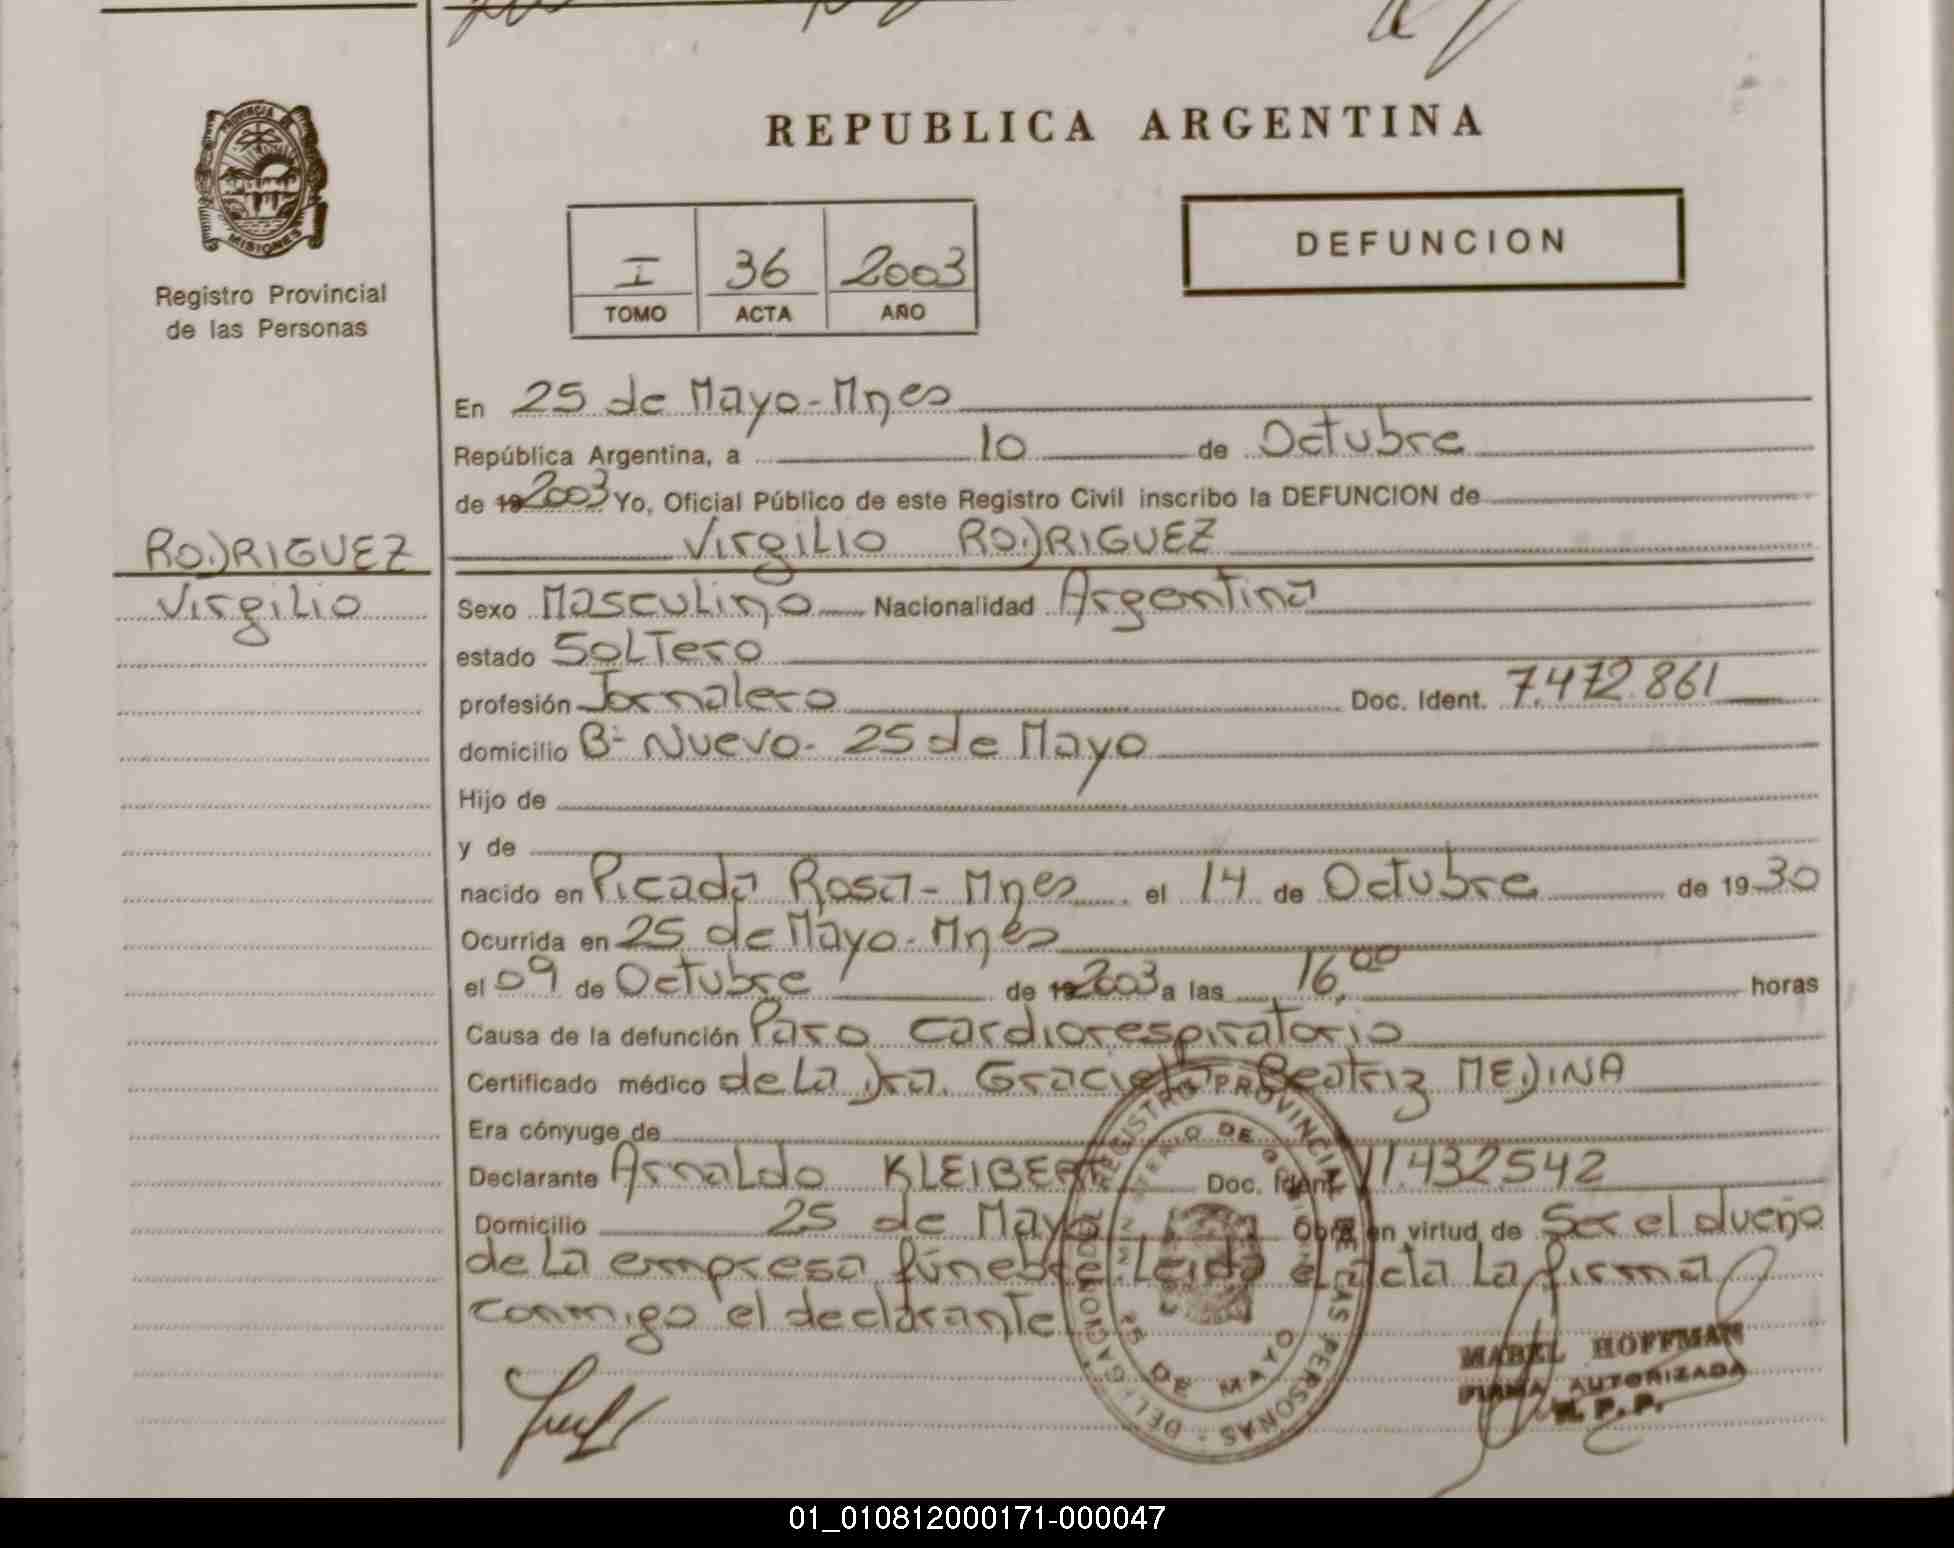 PROVINCIA DE
MISIONES
Registro Provincial
de las Personas
REPUBLICA ARGENTINA
I 36 2003
TOMO ACTA AÑO
DEFUNCION
En 25 de Mayo-Mnes
República Argentina, a 10 de Octubre
de 19 2003 Yo, Oficial Público de este Registro Civil inscribo la DEFUNCION de
Virgilio RODRIGUEZ
RODRIGUEZ
Virgilio
Sexo Masculino Nacionalidad Argentina
estado Soltero
profesión Jornalero Doc. Ident. 7.472.861
domicilio Bº Nuevo- 25 de Mayo
Hijo de
y de
nacido en Picada Rosa- Mnes el 14 de Octubre de 1930
Ocurrida en 25 de Mayo- Mnes
el 09 de Octubre de 19 2003 a las 16,00 horas
Causa de la defunción Paro cardiorespiratorio
Certificado médico de la Dra. Graciela Beatriz MEDINA
Era cónyuge de
Declarante Arnaldo KLEIBERT Doc. Ident. 11.432.542
Domicilio 25 de Mayo Obra en virtud de Ser el dueño
de la empresa fúnebre. Leida el acta la firma
conmigo el declarante
REGISTRO PROVINCIAL DE LAS PERSONAS - DELEGACION
25 DE MAYO
MABEL HOFFMAN
FIRMA AUTORIZADA
R. P. P.
01_010812000171-000047